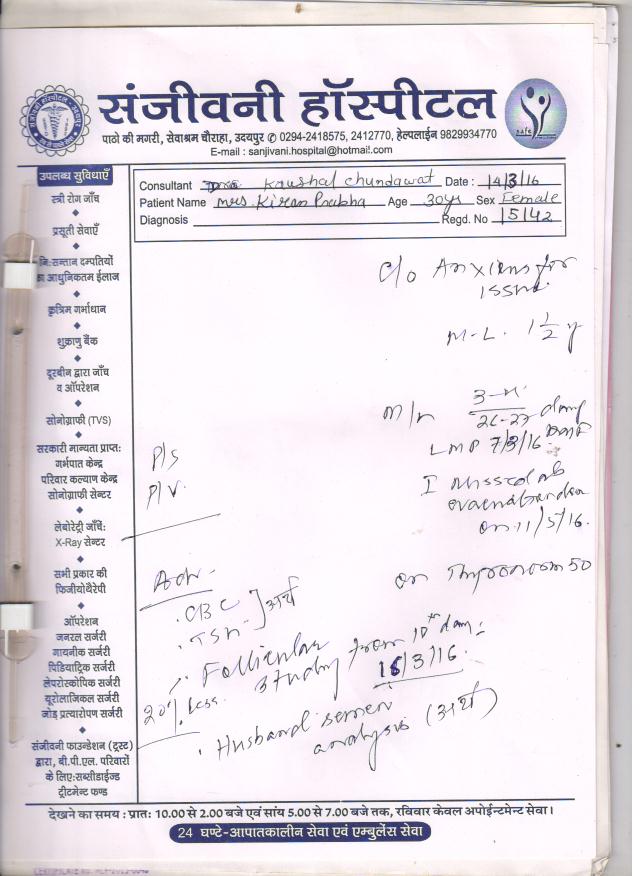 संजीवनी हॉस्पीटल
पाठों की मगरी, सेवाश्रम चौराहा, उदयपुर ✆ 0294-2418575, 2412770, हेल्पलाईन 9829934770
E-mail : sanjivani.hospital@hotmail.com
safe
उपलब्ध सुविधाएँ
स्त्री रोग जाँच
प्रसूती सेवाएँ
नि:सन्तान दम्पतियों
का आधुनिकतम ईलाज
कृत्रिम गर्भाधान
शुक्राणु बैंक
दूरबीन द्वारा जाँच
व ऑपरेशन
सोनोग्राफी (TVS)
सरकारी मान्यता प्राप्त:
गर्भपात केन्द्र
परिवार कल्याण केन्द्र
सोनोग्राफी सेन्टर
लेबोरेट्री जाँच:
X-Ray सेन्टर
सभी प्रकार की
फिजीयोथैरेपी
ऑपरेशन
जनरल सर्जरी
गायनीक सर्जरी
पिडियाट्रिक सर्जरी
लेपरोस्कोपिक सर्जरी
यूरोलाजिकल सर्जरी
जोड़ प्रत्यारोपण सर्जरी
संजीवनी फाउन्डेशन (ट्रस्ट)
द्वारा, बी.पी.एल. परिवारों
के लिए:सब्सीडाईज्ड
ट्रीटमेन्ट फण्ड
Consultant Kaushal Chundawat Date : 14/3/16
Patient Name Mrs. Kiran Prabha Age 30yrs Sex Female
Diagnosis Regd. No 15142
C/o Anxious for
issue
M-L. 1 1/2 y
M/H
26-27 days
LMP 7/3/16
P/S
P/V
I missed ab
on 11/5/16.
Adv-
on Thyronorm 50
CBC
TSH
अर्थ
Follicular
study from 10th day
16/3/16.
20% Less.
Husband semen
analysis (अर्थ)
देखने का समय : प्रात: 10.00 से 2.00 बजे एवं सांय 5.00 से 7.00 बजे तक, रविवार केवल अपोईन्टमेन्ट सेवा।
24 घण्टे-आपातकालीन सेवा एवं एम्बुलेंस सेवा